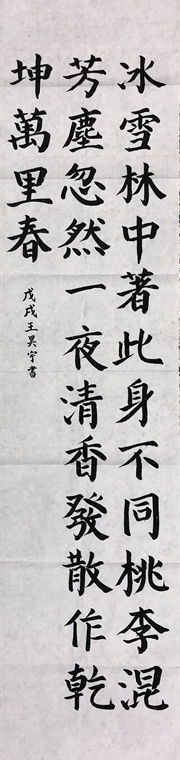 冰雪林中著此身不同桃李混
芳塵忽然一夜清香發散作乾
坤萬里春
戊戌王昊宇書